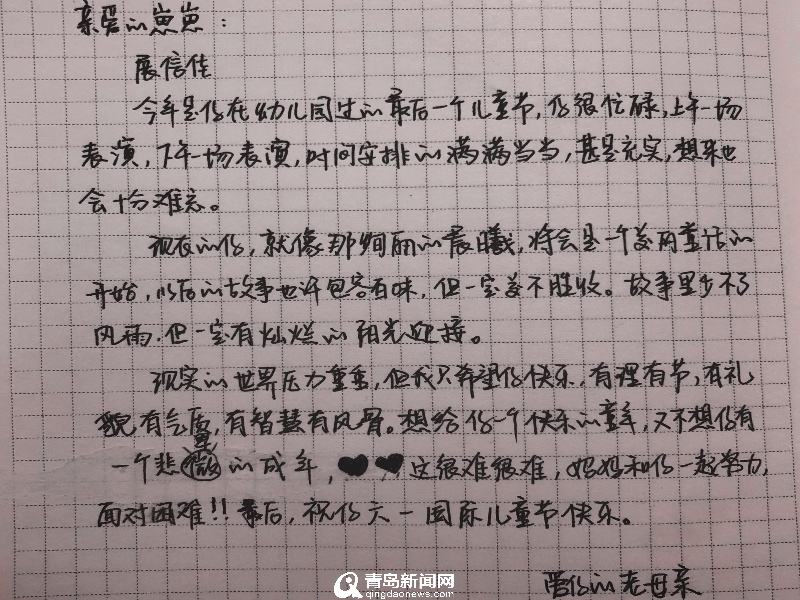 亲爱的崽崽:
展信佳
今年是你在幼儿园过的最后一个儿童节,你很忙碌,上午一场
表演,下午一场表演,时间安排的满满当当,甚是充实,想来也
会十分难忘。
现在的你,就像那绚丽的晨曦,将会是一个美丽童话的
开始,以后的故事也许包容百味,但一定美不胜收。故事里少不了
风雨,但一定有灿烂的阳光迎接。
现实的世界压力重重,但我只希望你快乐,有理有节,有礼
貌有气质,有智慧有风骨。想给你一个快乐的童年,又不想你有
一个悲的成年,这很难很难,妈妈和你一起努力,
面对困难!!最后,祝你六一国际儿童节快乐。
爱你的老母亲
青岛新闻网
qingdaonews.com